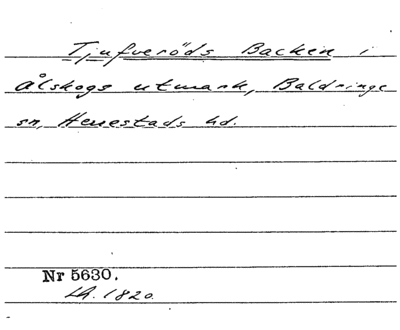 Tjufveröds Backen i
Ålskogs utmark, Baldringe
sn, Herrestads hd.
Nr 5630.
LA. 1820.